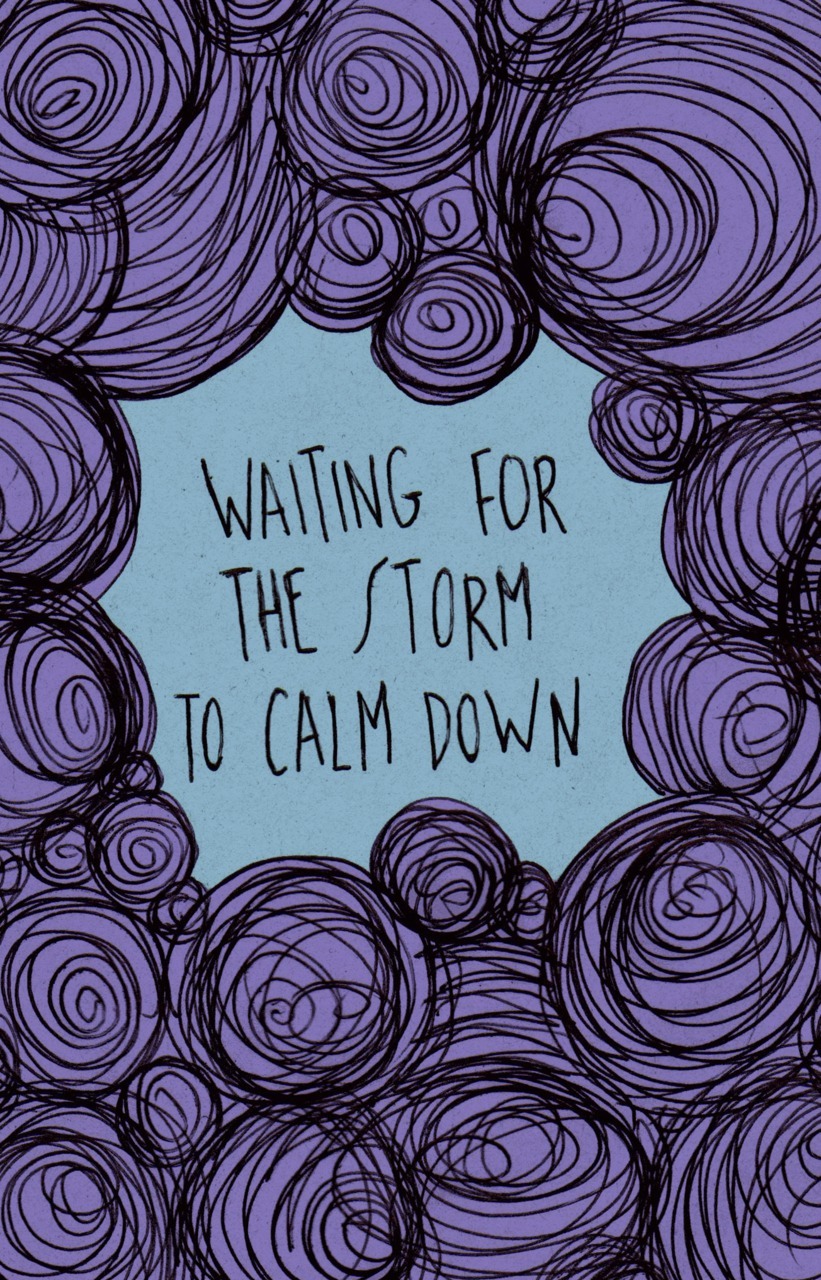 WAITING FOR
THE STORM
TO CALM DOWN